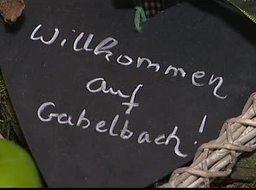 Willkommen
auf
Gabelbach!